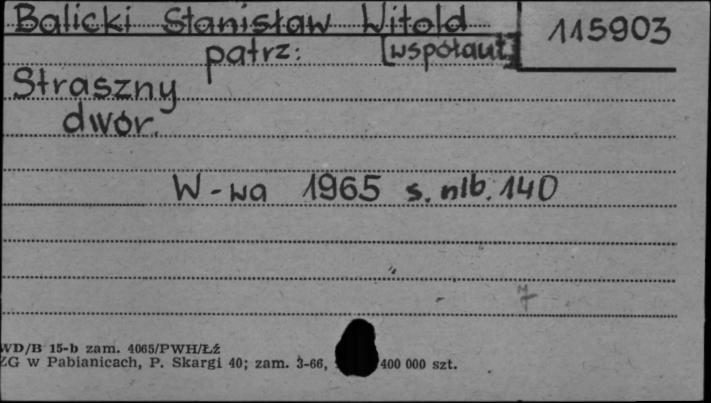 Balicki Stanisław Witold
115903
patrz: [współaut]
Straszny
dwór.
W-wa 1965 s. nlb. 140
7
WD/B 15-b zam. 4065/PWH/Łź
ZG w Pabianicach, P. Skargi 40; zam. 3-66, 400 000 szt.